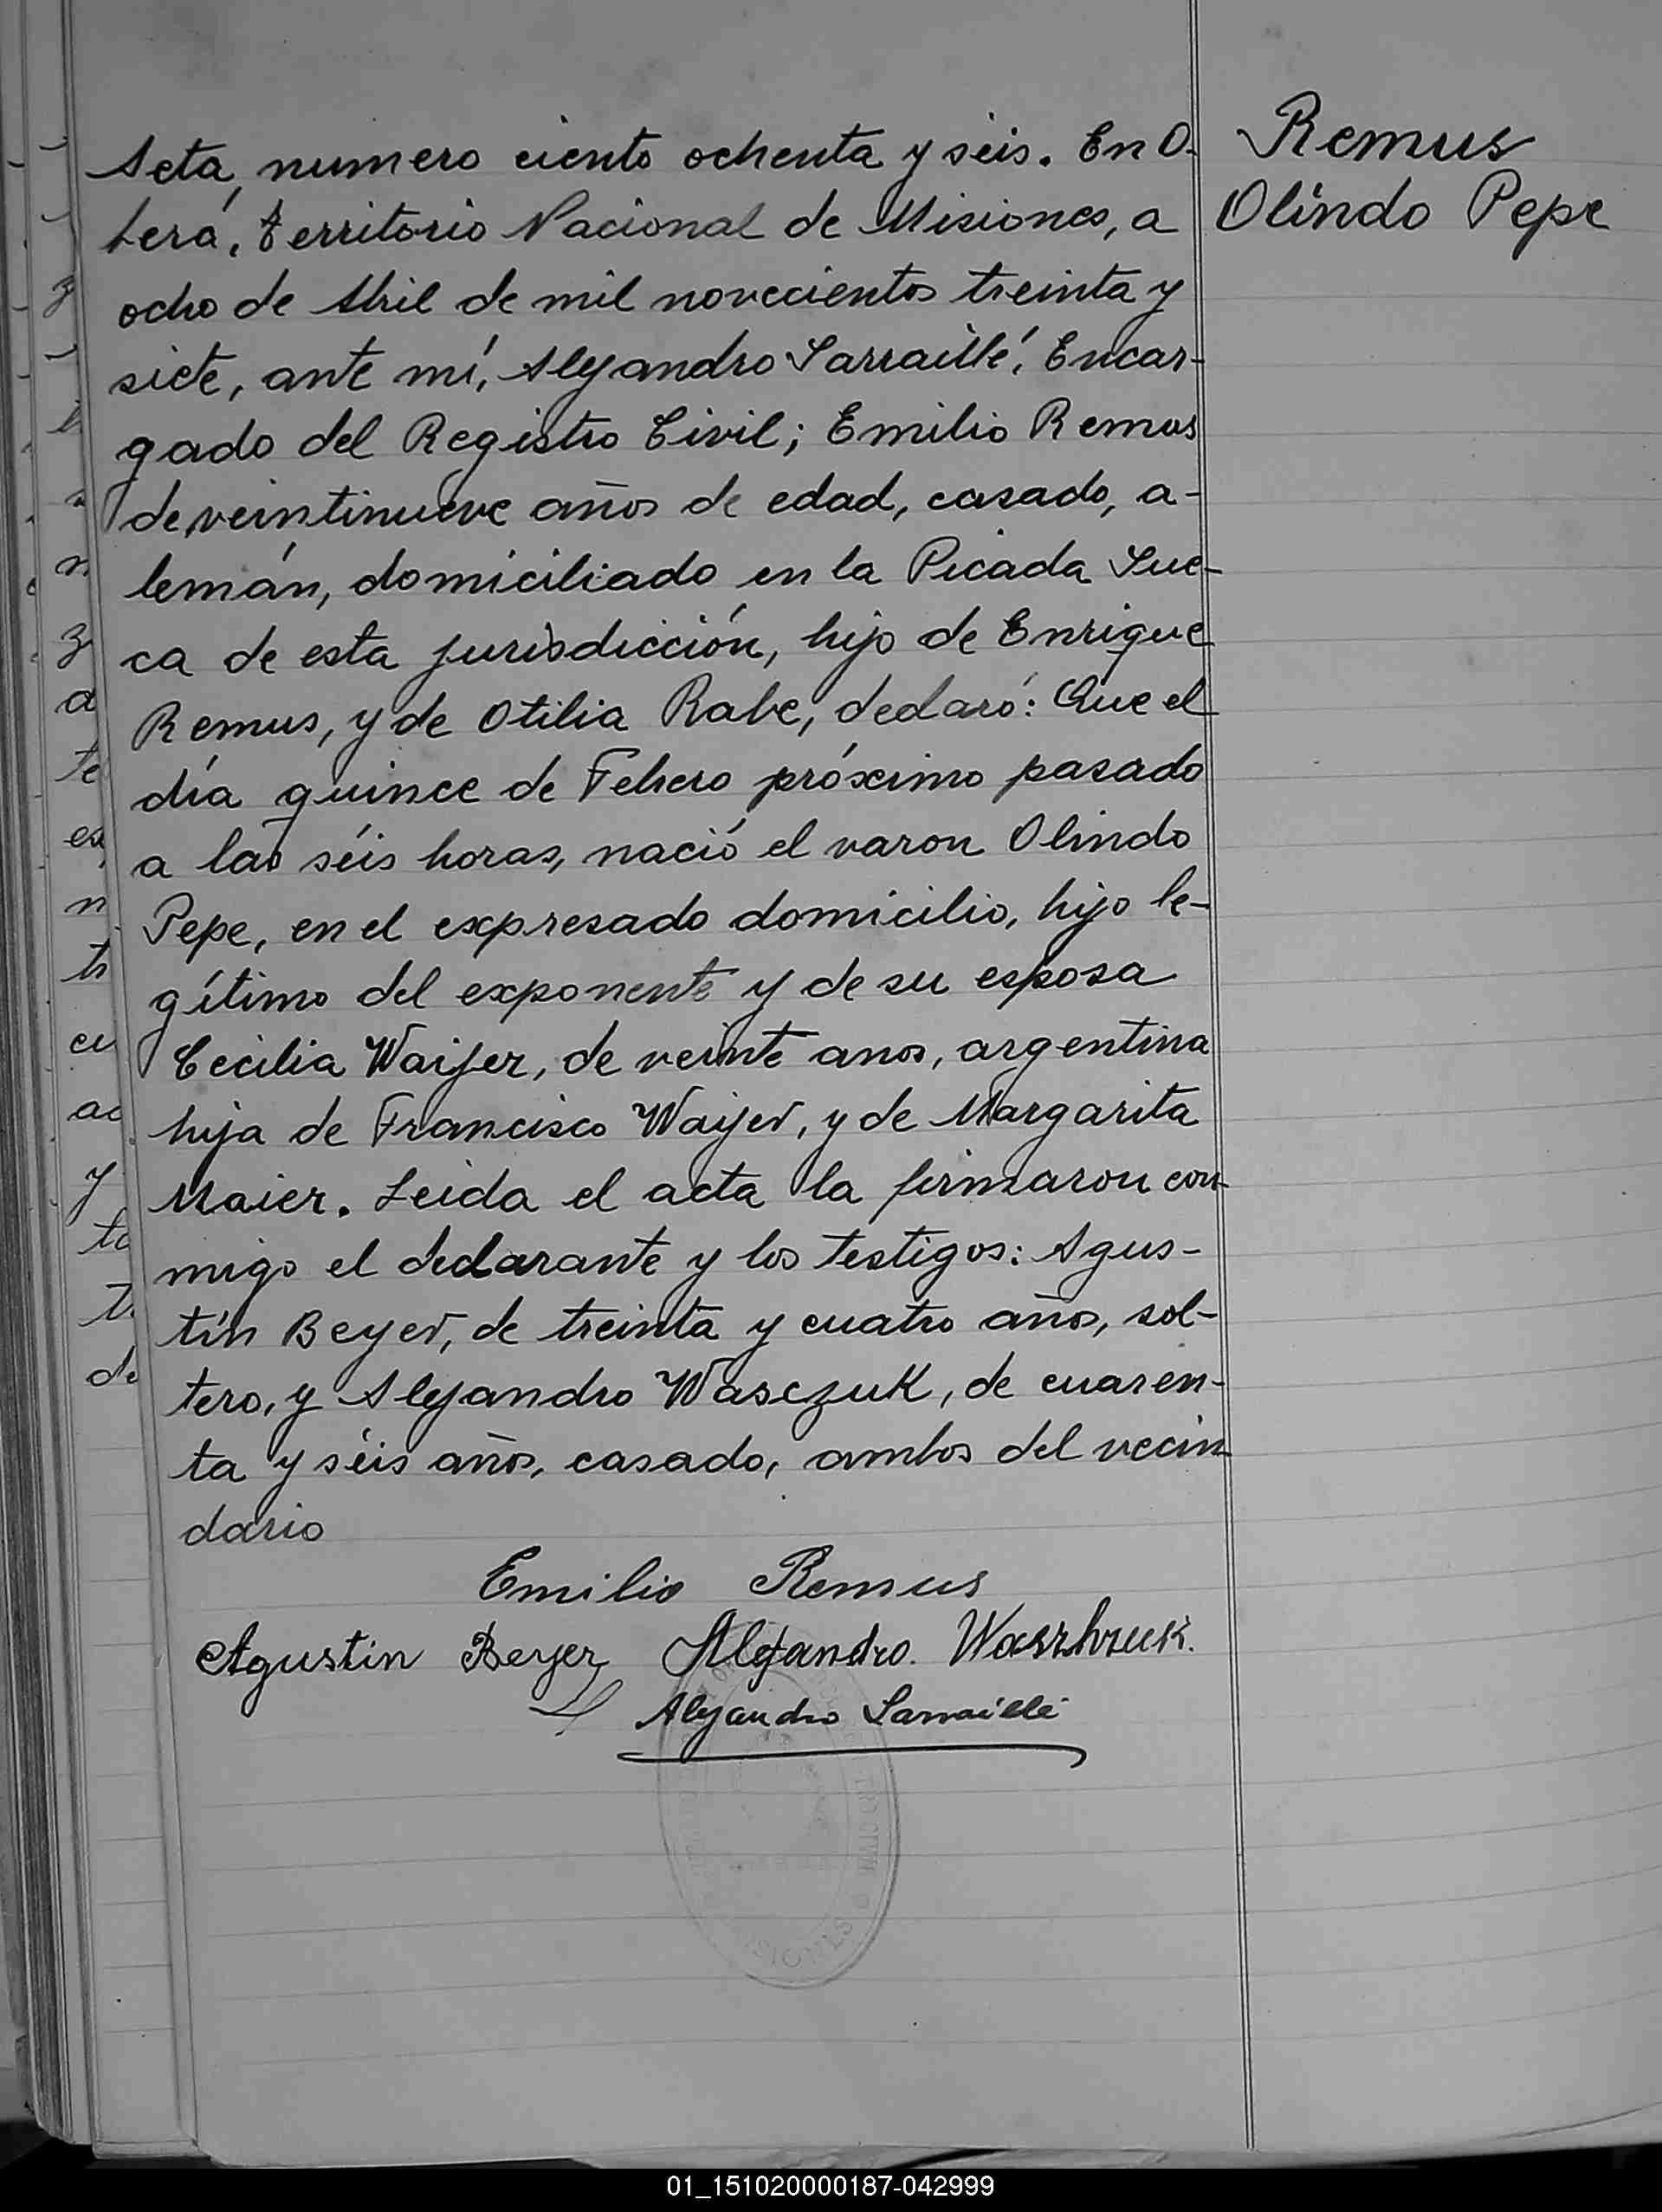 Acta, numero ciento ochenta y séis. En O-
berá, territorio Nacional de Misiones, a
ocho de Abril de mil novecientos treinta y
siete, ante mí, Alejandro Sarraillé, Encar-
gado del Registro Civil; Emilio Remus
de veintinueve años de edad, casado, a-
lemán, domiciliado en la Picada Sue-
ca de esta jurisdicción, hijo de Enrique
Remus, y de Otilia Rabe, declaró: Que el
día quince de Febrero próximo pasado
a las séis horas, nació el varon Olindo
Pepe, en el expresado domicilio, hijo le-
gítimo del exponente y de su esposa
Cecilia Waijer, de veinte anos, argentina
hija de Francisco Waijer, y de Margarita
Maier. Leida el acta la firmaron con-
migo el declarante y los testigos: Agus-
tín Beyer, de treinta y cuatro años, sol-
tero, y Alejandro Wasczuk, de cuaren-
ta y séis años, casado, ambos del vecin-
dario
Remus
Olindo Pepe
Emilio Remus
Agustin Beyer Alejandro.
Alejandro Sarraillé
01_151020000187-042999